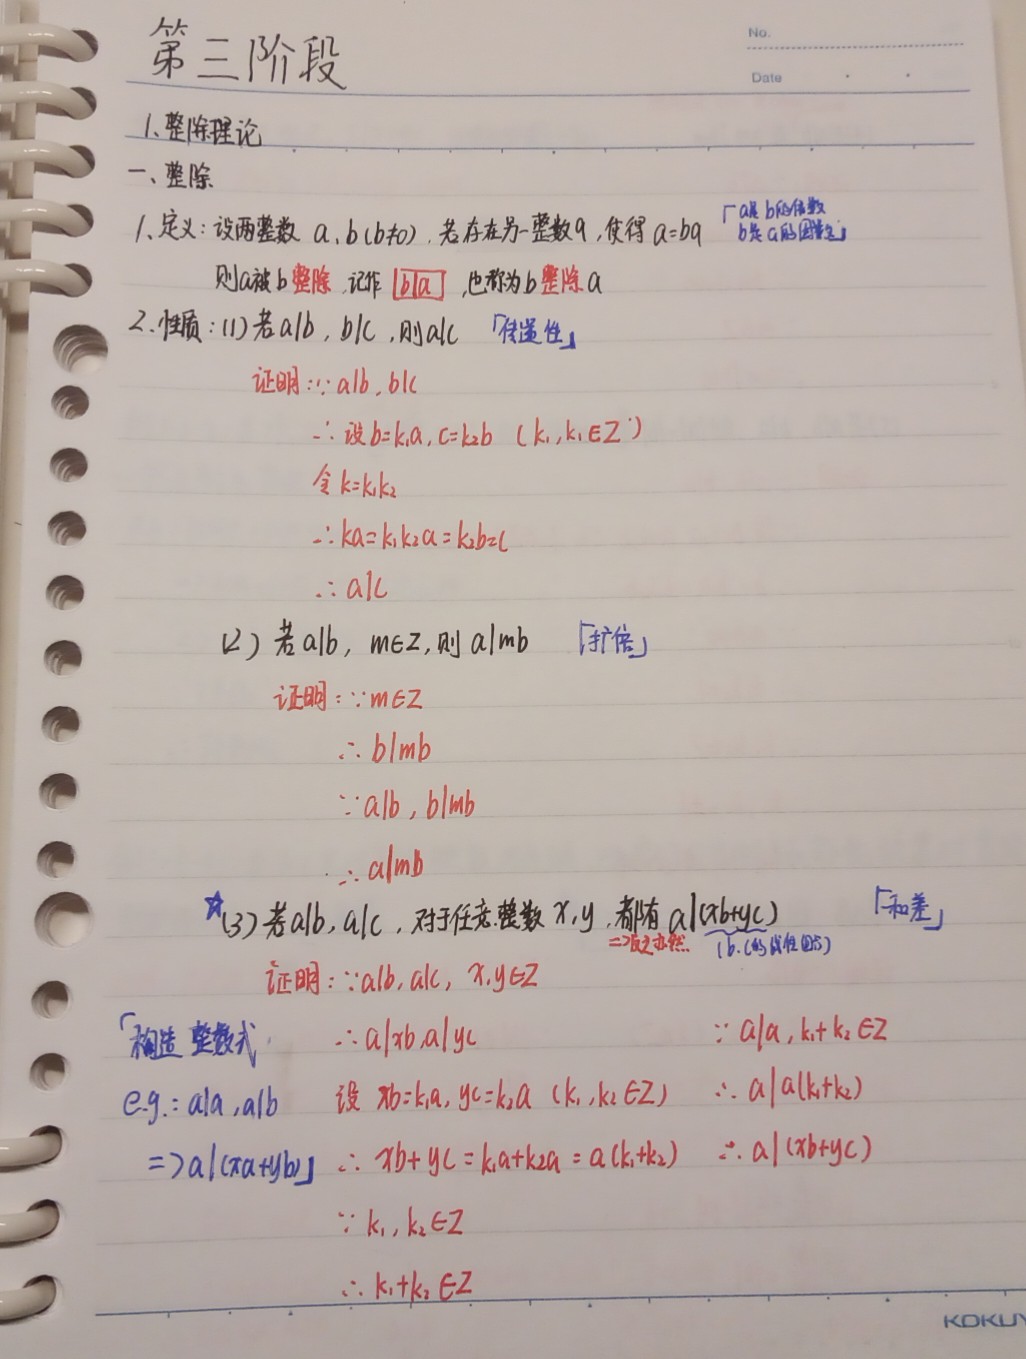 第三阶段
No.
Date
1、整除理论
一、整除
1、定义：设两整数 a, b(b≠0)，若存在另一整数q，使得 a=bq 「a是b的倍数
b是a的因数」
则a被b整除，记作 b|a ，也称为b整除a
2、性质：(1)若a|b，b|c，则a|c 「传递性」
证明：∵a|b，b|c
∴设b=k₁a，c=k₂b (k₁,k₁∈Z)
令k=k₁k₂
∴ka=k₁k₂a=k₂b=c
∴a|c
(2)若a|b，m∈Z，则a|mb 「扩倍」
证明：∵m∈Z
∴b|mb
∵a|b，b|mb
∴a|mb
☆(3)若a|b，a|c，对于任意整数x,y，都有a|(xb+yc) 「和差」
=>反之亦然 (b.c的线性组合)
证明：∵a|b，a|c，x,y∈Z
「构造整数式 ∴a|xb,a|yc ∵a|a，k₁+k₂∈Z
e.g.：a|a，a|b 设 xb=k₁a，yc=k₂a (k₁,k₂∈Z) ∴a|a(k₁+k₂)
=>a|(xa+yb)」 ∴xb+yc=k₁a+k₂a=a(k₁+k₂) ∴a|(xb+yc)
∵k₁,k₂∈Z
∴k₁+k₂∈Z
KOKUY